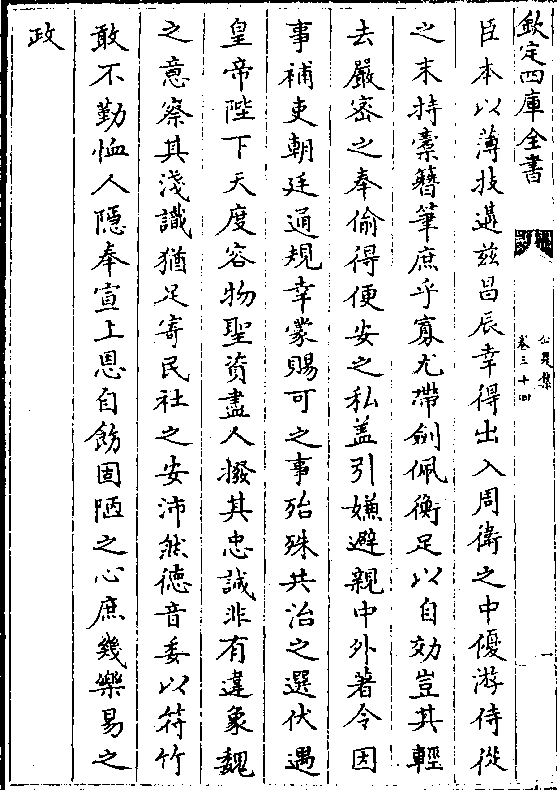 欽定四庫全書
公是集
卷三十四
臣本以薄技遘兹昌辰幸得出入周衛之中優游侍從
之末持橐簪筆庶乎寡尤帶劍佩衡足以自効豈其輕
去嚴宻之奉偷得便安之私盖引嫌避親中外著令因
事補吏朝廷通規幸蒙賜可之事殆殊共治之選伏遇
皇帝陛下天度容物聖資盡人撥其忠誠非有違象魏
之意察其淺識猶足寄民社之安沛然德音委以符竹
敢不勤恤人隱奉宣上恩自飭固陋之心庶幾樂易之
政